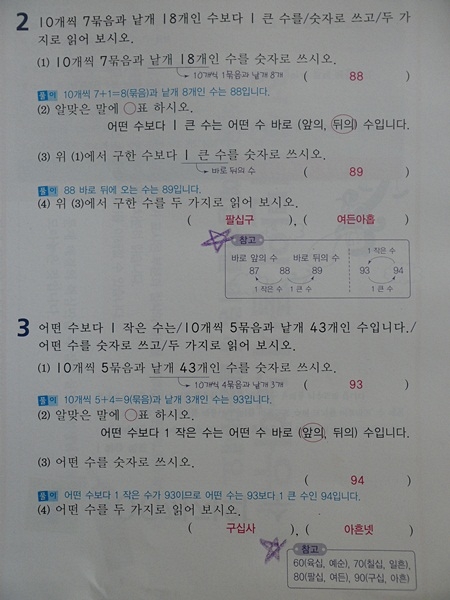 2 10개씩 7묶음과 낱개 18개인 수보다 1 큰 수를/숫자로 쓰고/두 가
지로 읽어 보시오.
(1) 10개씩 7묶음과 낱개 18개인 수를 숫자로 쓰시오.
10개씩 1묶음과 낱개 8개 ( 88 )
풀이 10개씩 7+1=8(묶음)과 낱개 8개인 수는 88입니다.
(2) 알맞은 말에 ○표 하시오.
어떤 수보다 1 큰 수는 어떤 수 바로 (앞의, 뒤의) 수입니다.
(3) 위 (1)에서 구한 수보다 1 큰 수를 숫자로 쓰시오.
바로 뒤의 수 ( 89 )
풀이 88 바로 뒤에 오는 수는 89입니다.
(4) 위 (3)에서 구한 수를 두 가지로 읽어 보시오.
( 팔십구 ), ( 여든아홉 )
참고
바로 앞의 수 바로 뒤의 수 1 작은 수
87 88 89 93 94
1 작은 수 1 큰 수 1 큰 수
3 어떤 수보다 1 작은 수는/10개씩 5묶음과 낱개 43개인 수입니다./
어떤 수를 숫자로 쓰고/두 가지로 읽어 보시오.
(1) 10개씩 5묶음과 낱개 43개인 수를 숫자로 쓰시오.
10개씩 4묶음과 낱개 3개 ( 93 )
풀이 10개씩 5+4=9(묶음)과 낱개 3개인 수는 93입니다.
(2) 알맞은 말에 ○표 하시오.
어떤 수보다 1 작은 수는 어떤 수 바로 (앞의, 뒤의) 수입니다.
(3) 어떤 수를 숫자로 쓰시오.
( 94 )
풀이 어떤 수보다 1 작은 수가 93이므로 어떤 수는 93보다 1 큰 수인 94입니다.
(4) 어떤 수를 두 가지로 읽어 보시오.
( 구십사 ), ( 아흔넷 )
참고
60(육십, 예순), 70(칠십, 일흔),
80(팔십, 여든), 90(구십, 아흔)